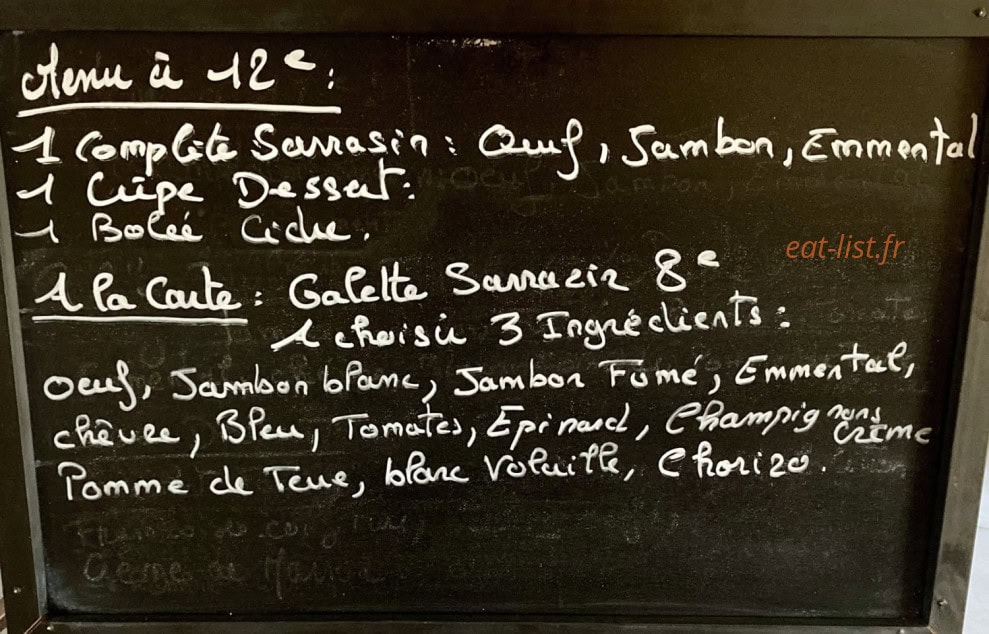 Menu à 12€:
1 Complète Sarrasin : Œuf, Jambon, Emmental
1 Crêpe Dessert:
1 Bolée Cidre.
eat-list.fr
A la Carte : Galette Sarrazin 8€
A choisir 3 Ingrédients :
Oeuf, Jambon blanc, Jambon Fumé, Emmental,
chèvre, Bleu, Tomates, Epinard, Champignons
Crème
Pomme de Terre, blanc Volaille, Chorizo.